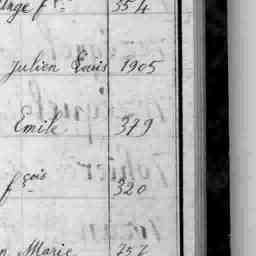 ange f 354
Julien Louis 1905
Emile 379
fçois 320
n Marie 757